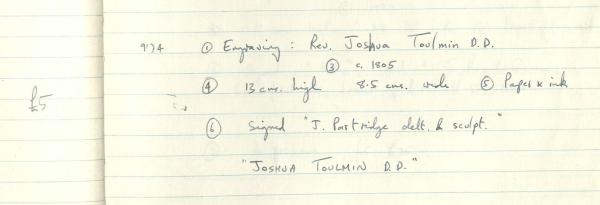 9174 ① Engraving : Rev. Joshua Toulmin D.D.
③ c. 1805
④ 13 cms. high 8.5 cms. wide ⑤ Paper & ink
£5
⑥ Signed "J. Partridge delt. & sculpt."
"JOSHUA TOULMIN D.D."